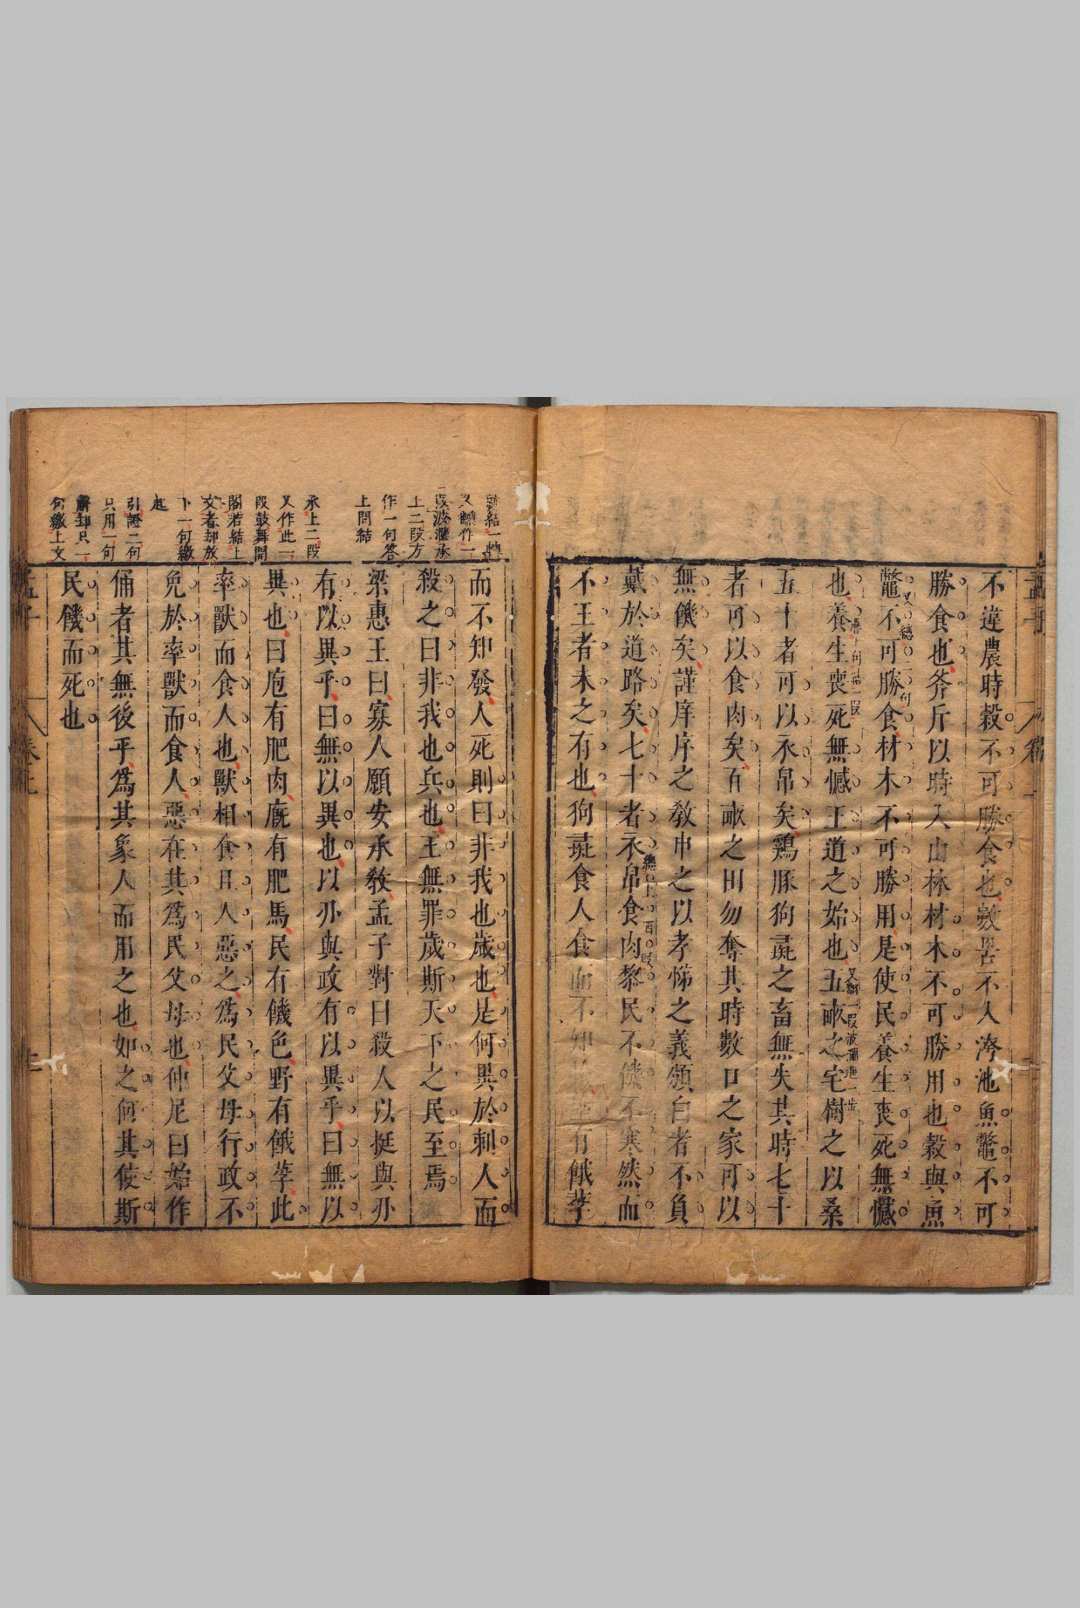 不違農時穀不可勝食也數罟不入洿池魚鼈不可
勝食也斧斤以時入山林材木不可勝用也穀與魚
鼈不可勝食材木不可勝用是使民養生喪死無憾
也養生喪死無憾王道之始也五畝之宅樹之以桑
五十者可以衣帛矣鷄豚狗彘之畜無失其時七十
者可以食肉矣百畝之田勿奪其時數口之家可以
無饑矣謹庠序之教申之以孝悌之義頒白者不負
戴於道路矣七十者衣帛食肉黎民不饑不寒然而
不王者未之有也狗彘食人食而不知有餓莩
而不知發人死則曰非我也歲也是何異於刺人而
殺之曰非我也兵也王無罪歲斯天下之民至焉
梁惠王曰寡人願安承教孟子對曰殺人以挺與刃
有以異乎曰無以異也以刃與政有以異乎曰無以
異也曰庖有肥肉廐有肥馬民有饑色野有餓莩此
率獸而食人也獸相食且人惡之爲民父母行政不
免於率獸而食人惡在其爲民父母也仲尼曰始作
俑者其無後乎爲其象人而用之也如之何其使斯
民饑而死也
上二段方
作一句答
上問結
承上二段
又作此一
段鼓舞問
閣若結上
文者却放
下一句繳
起
引證二句
只用一句
解却只一
句繳上文
孟子
卷上